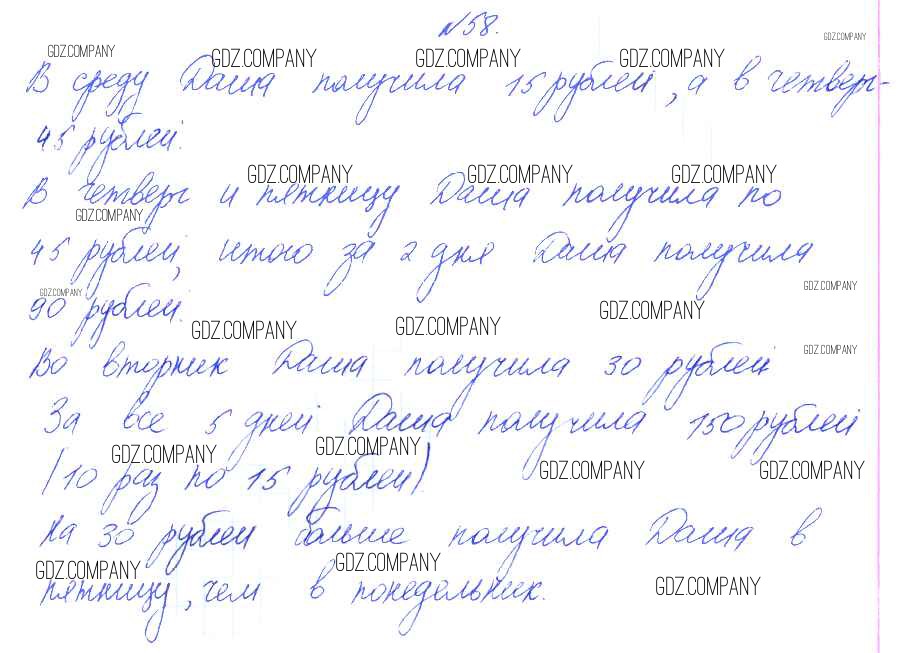 №58.
GDZ.COMPANY GDZ.COMPANY GDZ.COMPANY GDZ.COMPANY GDZ.COMPANY
В среду Даша получила 15 рублей, а в четверг-
45 рублей.
GDZ.COMPANY GDZ.COMPANY GDZ.COMPANY
В четверг и пятницу Даша получила по
GDZ.COMPANY
45 рублей, итого за 2 дня Даша получила
GDZ.COMPANY GDZ.COMPANY
90 рублей.
GDZ.COMPANY GDZ.COMPANY GDZ.COMPANY
Во вторник Даша получила 30 рублей
GDZ.COMPANY
За все 5 дней Даша получила 150 рублей
GDZ.COMPANY GDZ.COMPANY GDZ.COMPANY GDZ.COMPANY
(10 раз по 15 рублей).
На 30 рублей больше получила Даша в
GDZ.COMPANY GDZ.COMPANY GDZ.COMPANY
пятницу, чем в понедельник.